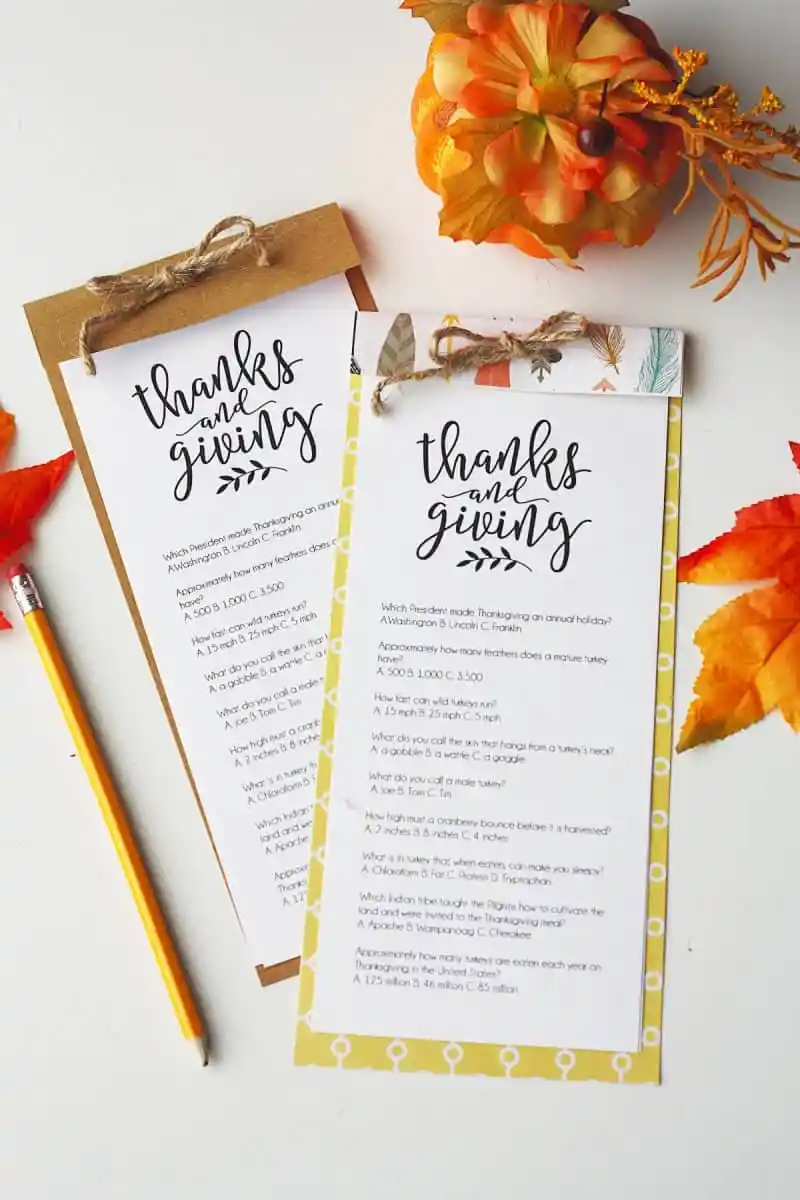 thanks
and
giving
Which President made Thanksgiving an annual
A.Washington B. Lincoln C. Franklin
Approximately how many feathers does a
have?
A. 500 B. 1,000 C. 3,500
How fast can wild turkeys run?
A. 15 mph B. 25 mph C. 5 mph
What do you call the skin that
A. a gobble B. a wattle C. a
What do you call a male
A. Joe B. Tom C. Tim
How high must a cranb
A. 2 inches B. 8 inche
What is in turkey th
A. Chloroform B. F
Which Indian
land and we
A. Apache
Approxi
Thanks
A. 12
thanks
and
giving
Which President made Thanksgiving an annual holiday?
A.Washington B. Lincoln C. Franklin
Approximately how many feathers does a mature turkey
have?
A. 500 B. 1,000 C. 3,500
How fast can wild turkeys run?
A. 15 mph B. 25 mph C. 5 mph
What do you call the skin that hangs from a turkey's neck?
A. a gobble B. a wattle C. a goggle
What do you call a male turkey?
A. Joe B. Tom C. Tim
How high must a cranberry bounce before it is harvested?
A. 2 inches B. 8 inches C. 4 inches
What is in turkey that, when eaten, can make you sleepy?
A. Chloroform B. Fat C. Protein D. Tryptophan
Which Indian tribe taught the Pilgrims how to cultivate the
land and were invited to the Thanksgiving meal?
A. Apache B. Wampanoag C. Cherokee
Approximately how many turkeys are eaten each year on
Thanksgiving in the United States?
A. 125 million B. 46 million C. 85 million